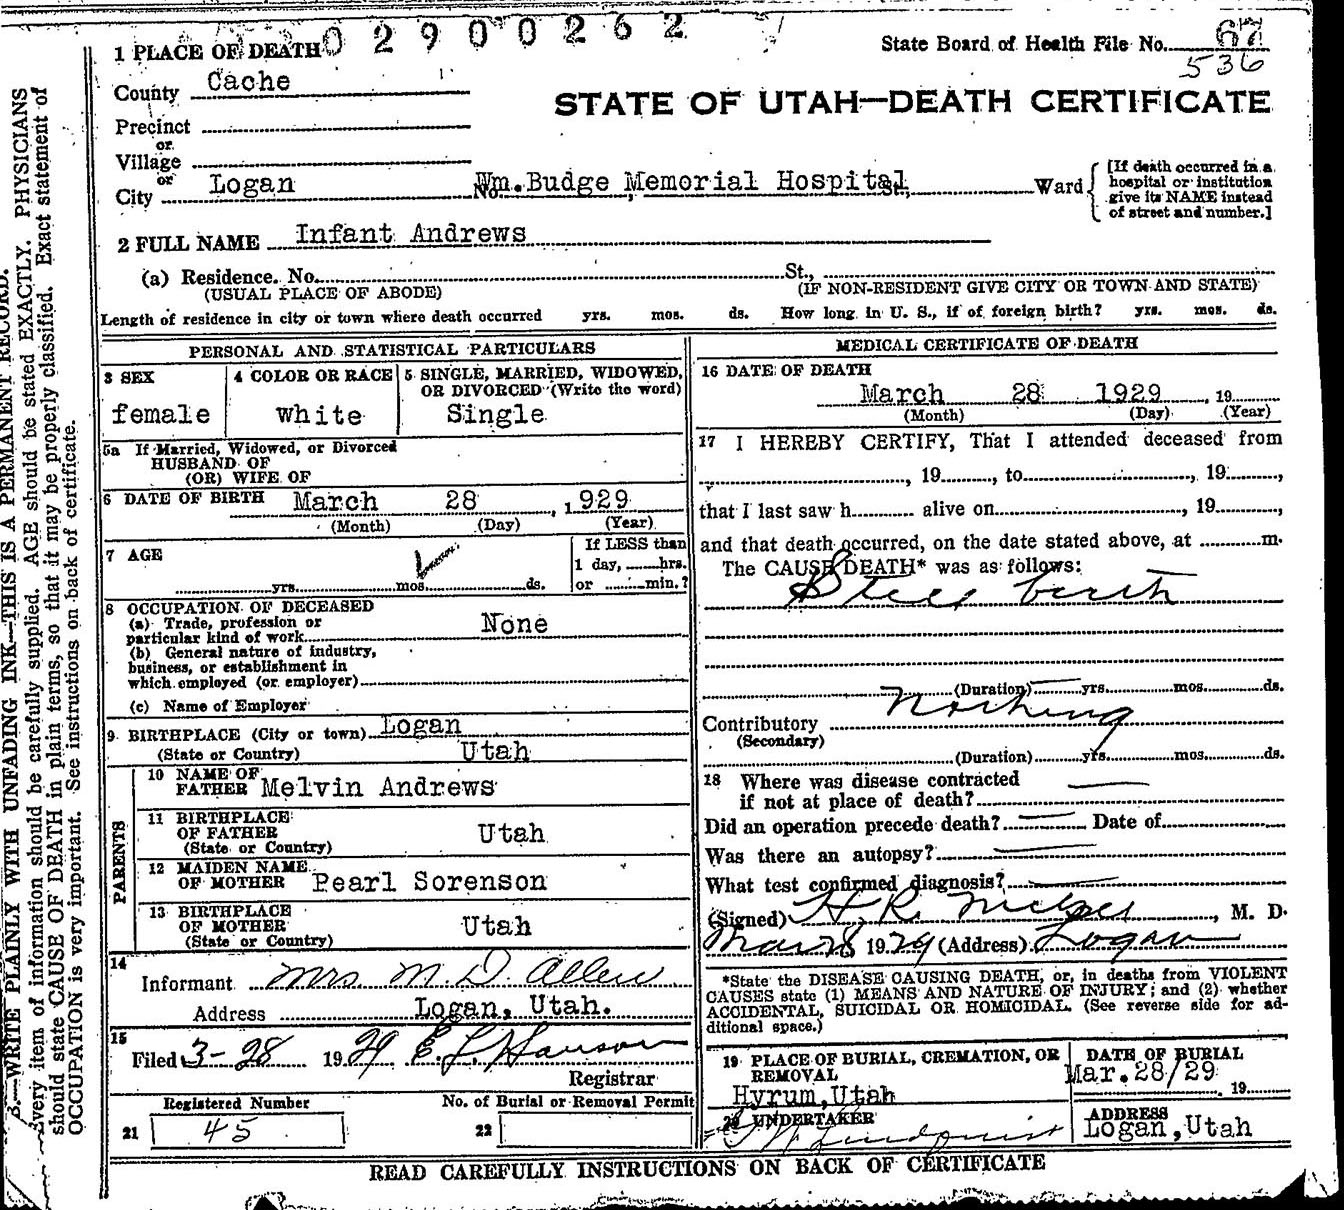 0 2 9 0 0 2 6 2
State Board of Health File No. 67
536
1 PLACE OF DEATH
County Cache
STATE OF UTAH—DEATH CERTIFICATE
Precinct
or
Village
or
City Logan No. Wm. Budge Memorial Hospital St., Ward
[If death occurred in a
hospital or institution
give its NAME instead
of street and number.]
2 FULL NAME Infant Andrews
(a) Residence. No. St.,
(USUAL PLACE OF ABODE) (IF NON-RESIDENT GIVE CITY OR TOWN AND STATE)
Length of residence in city or town where death occurred yrs. mos. ds. How long in U. S., if of foreign birth? yrs. mos. ds.
PERSONAL AND STATISTICAL PARTICULARS
3 SEX
female
4 COLOR OR RACE
White
5 SINGLE, MARRIED, WIDOWED,
OR DIVORCED (Write the word)
Single
5a If Married, Widowed, or Divorced
HUSBAND OF
(OR) WIFE OF
6 DATE OF BIRTH March 28, 1929
(Month) (Day) (Year)
7 AGE
yrs. mos. ds.
If LESS than
1 day, hrs.
or min.?
8 OCCUPATION OF DECEASED
(a) Trade, profession or
particular kind of work None
(b) General nature of industry,
business, or establishment in
which employed (or employer)
(c) Name of Employer
9 BIRTHPLACE (City or town) Logan
(State or Country) Utah
PARENTS
10 NAME OF
FATHER Melvin Andrews
11 BIRTHPLACE
OF FATHER Utah
(State or Country)
12 MAIDEN NAME
OF MOTHER Pearl Sorenson
13 BIRTHPLACE
OF MOTHER Utah
(State or Country)
14
Informant Mrs. M. D. Allen
Address Logan, Utah.
15
Filed 3-28 1929 E. L. Hanson
Registrar
Registered Number
21 45
No. of Burial or Removal Permit
22
MEDICAL CERTIFICATE OF DEATH
16 DATE OF DEATH
March 28 1929, 19
(Month) (Day) (Year)
17 I HEREBY CERTIFY, That I attended deceased from
, 19, to, 19,
that I last saw h alive on, 19,
and that death occurred, on the date stated above, at m.
The CAUSE DEATH* was as follows:
Still birth
(Duration) yrs. mos. ds.
Contributory Nothing
(Secondary)
(Duration) yrs. mos. ds.
18 Where was disease contracted
if not at place of death?
Did an operation precede death? Date of
Was there an autopsy?
What test confirmed diagnosis?
(Signed) H R, M. D.
Mar 28 1929 (Address) Logan
*State the DISEASE CAUSING DEATH, or, in deaths from VIOLENT
CAUSES state (1) MEANS AND NATURE OF INJURY; and (2) whether
ACCIDENTAL, SUICIDAL OR HOMICIDAL. (See reverse side for ad-
ditional space.)
19 PLACE OF BURIAL, CREMATION, OR
REMOVAL
Hyrum, Utah
DATE OF BURIAL
Mar. 28/29 19
20 UNDERTAKER
Lindquist
ADDRESS
Logan, Utah
READ CAREFULLY INSTRUCTIONS ON BACK OF CERTIFICATE
B.—WRITE PLAINLY WITH UNFADING INK—THIS IS A PERMANENT RECORD.
Every item of information should be carefully supplied. AGE should be stated EXACTLY. PHYSICIANS
should state CAUSE OF DEATH in plain terms, so that it may be properly classified. Exact statement of
OCCUPATION is very important. See instructions on back of certificate.